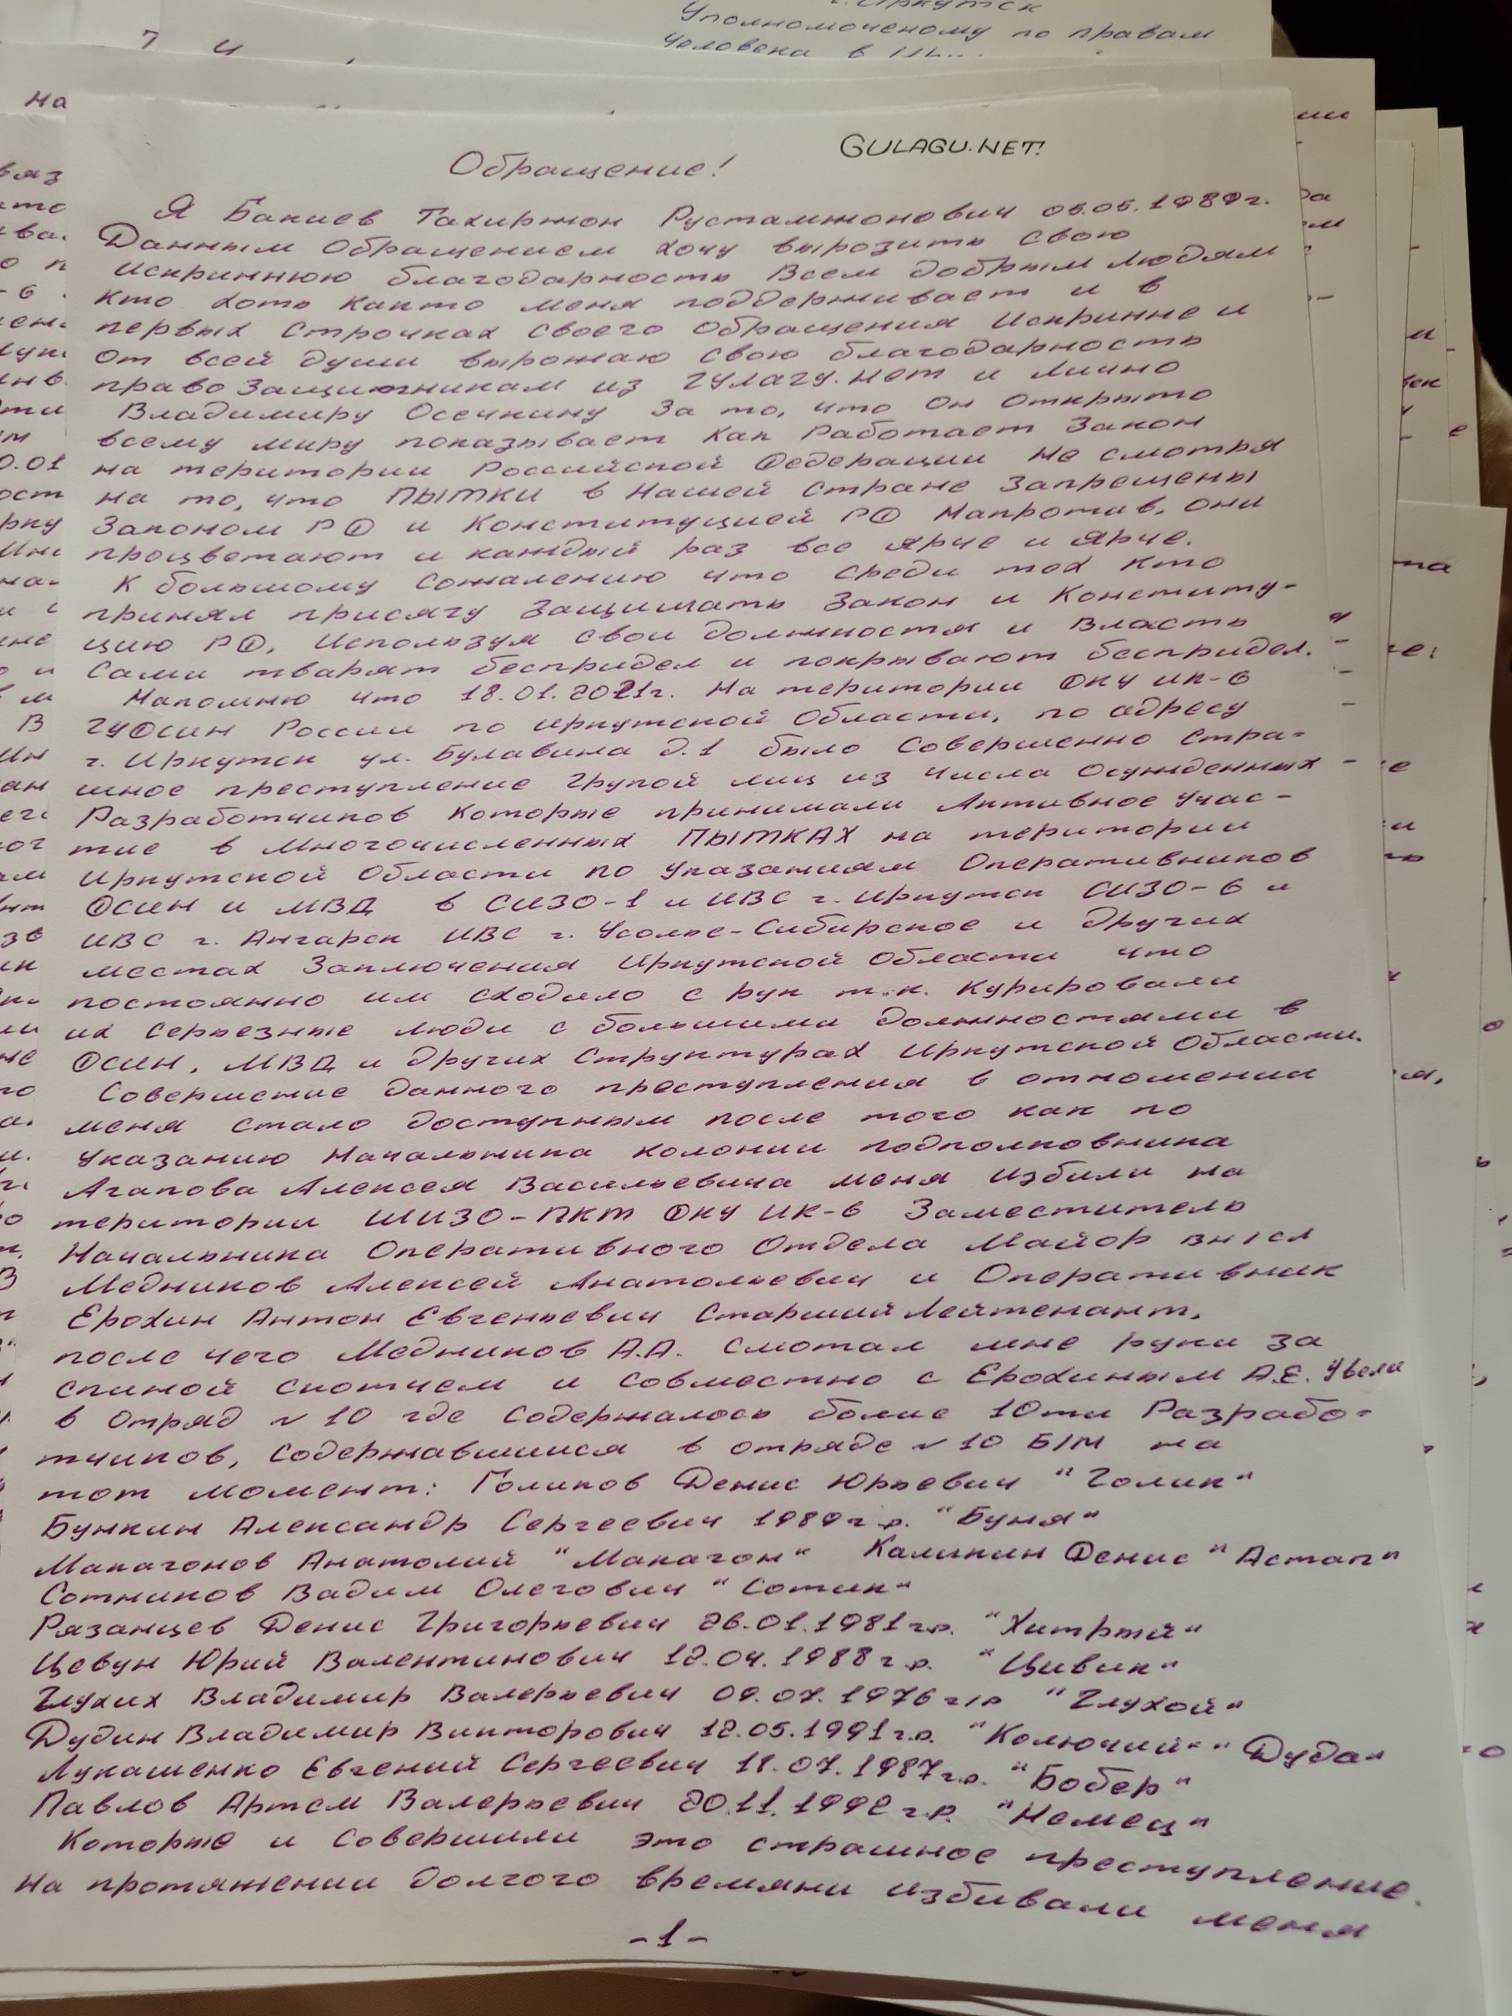 г. Иркутск
Уполномоченому по правам
Человека в
GULAGU.NET!
Обращение!
Я Бакиев Тахиржон Рустамжонович 05.05.1989г.
Данным Обращением хочу вырозить свою
Искриннюю благодарность Всем добрым людям
кто хоть както меня поддерживает и в
первых строчках своего Обращения Искринне и
от всей души выражаю свою благодарность
право Защитникам из гулагу.нет и лично
Владимиру Осечкину За то, что он открыто
всему миру показывает как Работает Закон
на територии Российской Федерации не смотря
на то, что ПЫТКИ в нашей стране запрещены
Законом РФ и Конституцией РФ Напротив, они
процветают и каждый раз все ярче и ярче.
К большому сожалению что среди тех кто
принял присягу Защищать Закон и Конститу-
цию РФ, Используя свои должностя и Власть
Сами тварят беспридел и покрывают беспридел.
Напомню что 18.01.2021г. на територии ФКУ ИК-6
ГУФСИН России по Иркутской Области, по адресу
г. Иркутск ул. Булавина д.1 было Совершенно Стра-
шное преступление Групой лиц из числа Осужденных
Разработчиков Которые принимали Активное Учас-
тие в Многочисленных ПЫТКАХ на територии
Иркутской Области по Указаниям Оперативников
ФСИН и МВД в СИЗО-1 и ИВС г. Иркутск СИЗО-6 и
ИВС г. Ангарск ИВС г. Усолье-Сибирское и других
местах Заключения Иркутской Области что
постоянно им сходило с рук т.к. Курировали
их серьезные люди с большими должностями в
ФСИН, МВД и других Структурах Иркутской Области.
Совершение данного преступления в отношении
меня стало доступным после того как по
Указанию Начальника колонии подполковника
Агапова Алексея Васильевича меня избили на
територии ШИЗО-ПКТ ФКУ ИК-6 Заместитель
Начальника Оперативного Отдела Майор вн/сл
Медников Алексей Анатольевич и Оперативник
Ерохин Антон Евгеньевич Старший Лейтенант,
после чего Медников А.А. смотал мне руки за
спиной скотчем и совместно с Ерохиным А.Е. Увели
в Отряд №10 где содержалось более 10ти Разрабо-
тчиков, содержавшиися в отряде №10 Б/М на
тот момент: Голиков Денис Юрьевич "Голик"
Бункин Александр Сергеевич 1989г.р. "Буня"
Макагонов Анатолий "Макагон" Калинин Денис "Астап"
Сотников Вадим Олегович "Сотик"
Рязанцев Денис Григорьевич 26.01.1981г.р. "Хитрый"
Цевун Юрий Валентинович 12.04.1988г.р. "Цивик"
Глухих Владимир Валерьевич 09.07.1976г/р "Глухой"
Дудин Владимир Викторович 12.05.1991г.р. "Колючий" "Дуда"
Лукашенко Евгений Сергеевич 18.07.1987г.р. "Бобер"
Павлов Артем Валерьевич 20.11.1992г.р. "Немец"
Которые и совершили это страшное преступление.
На протяжении долгого времяни избивали меня
-1-